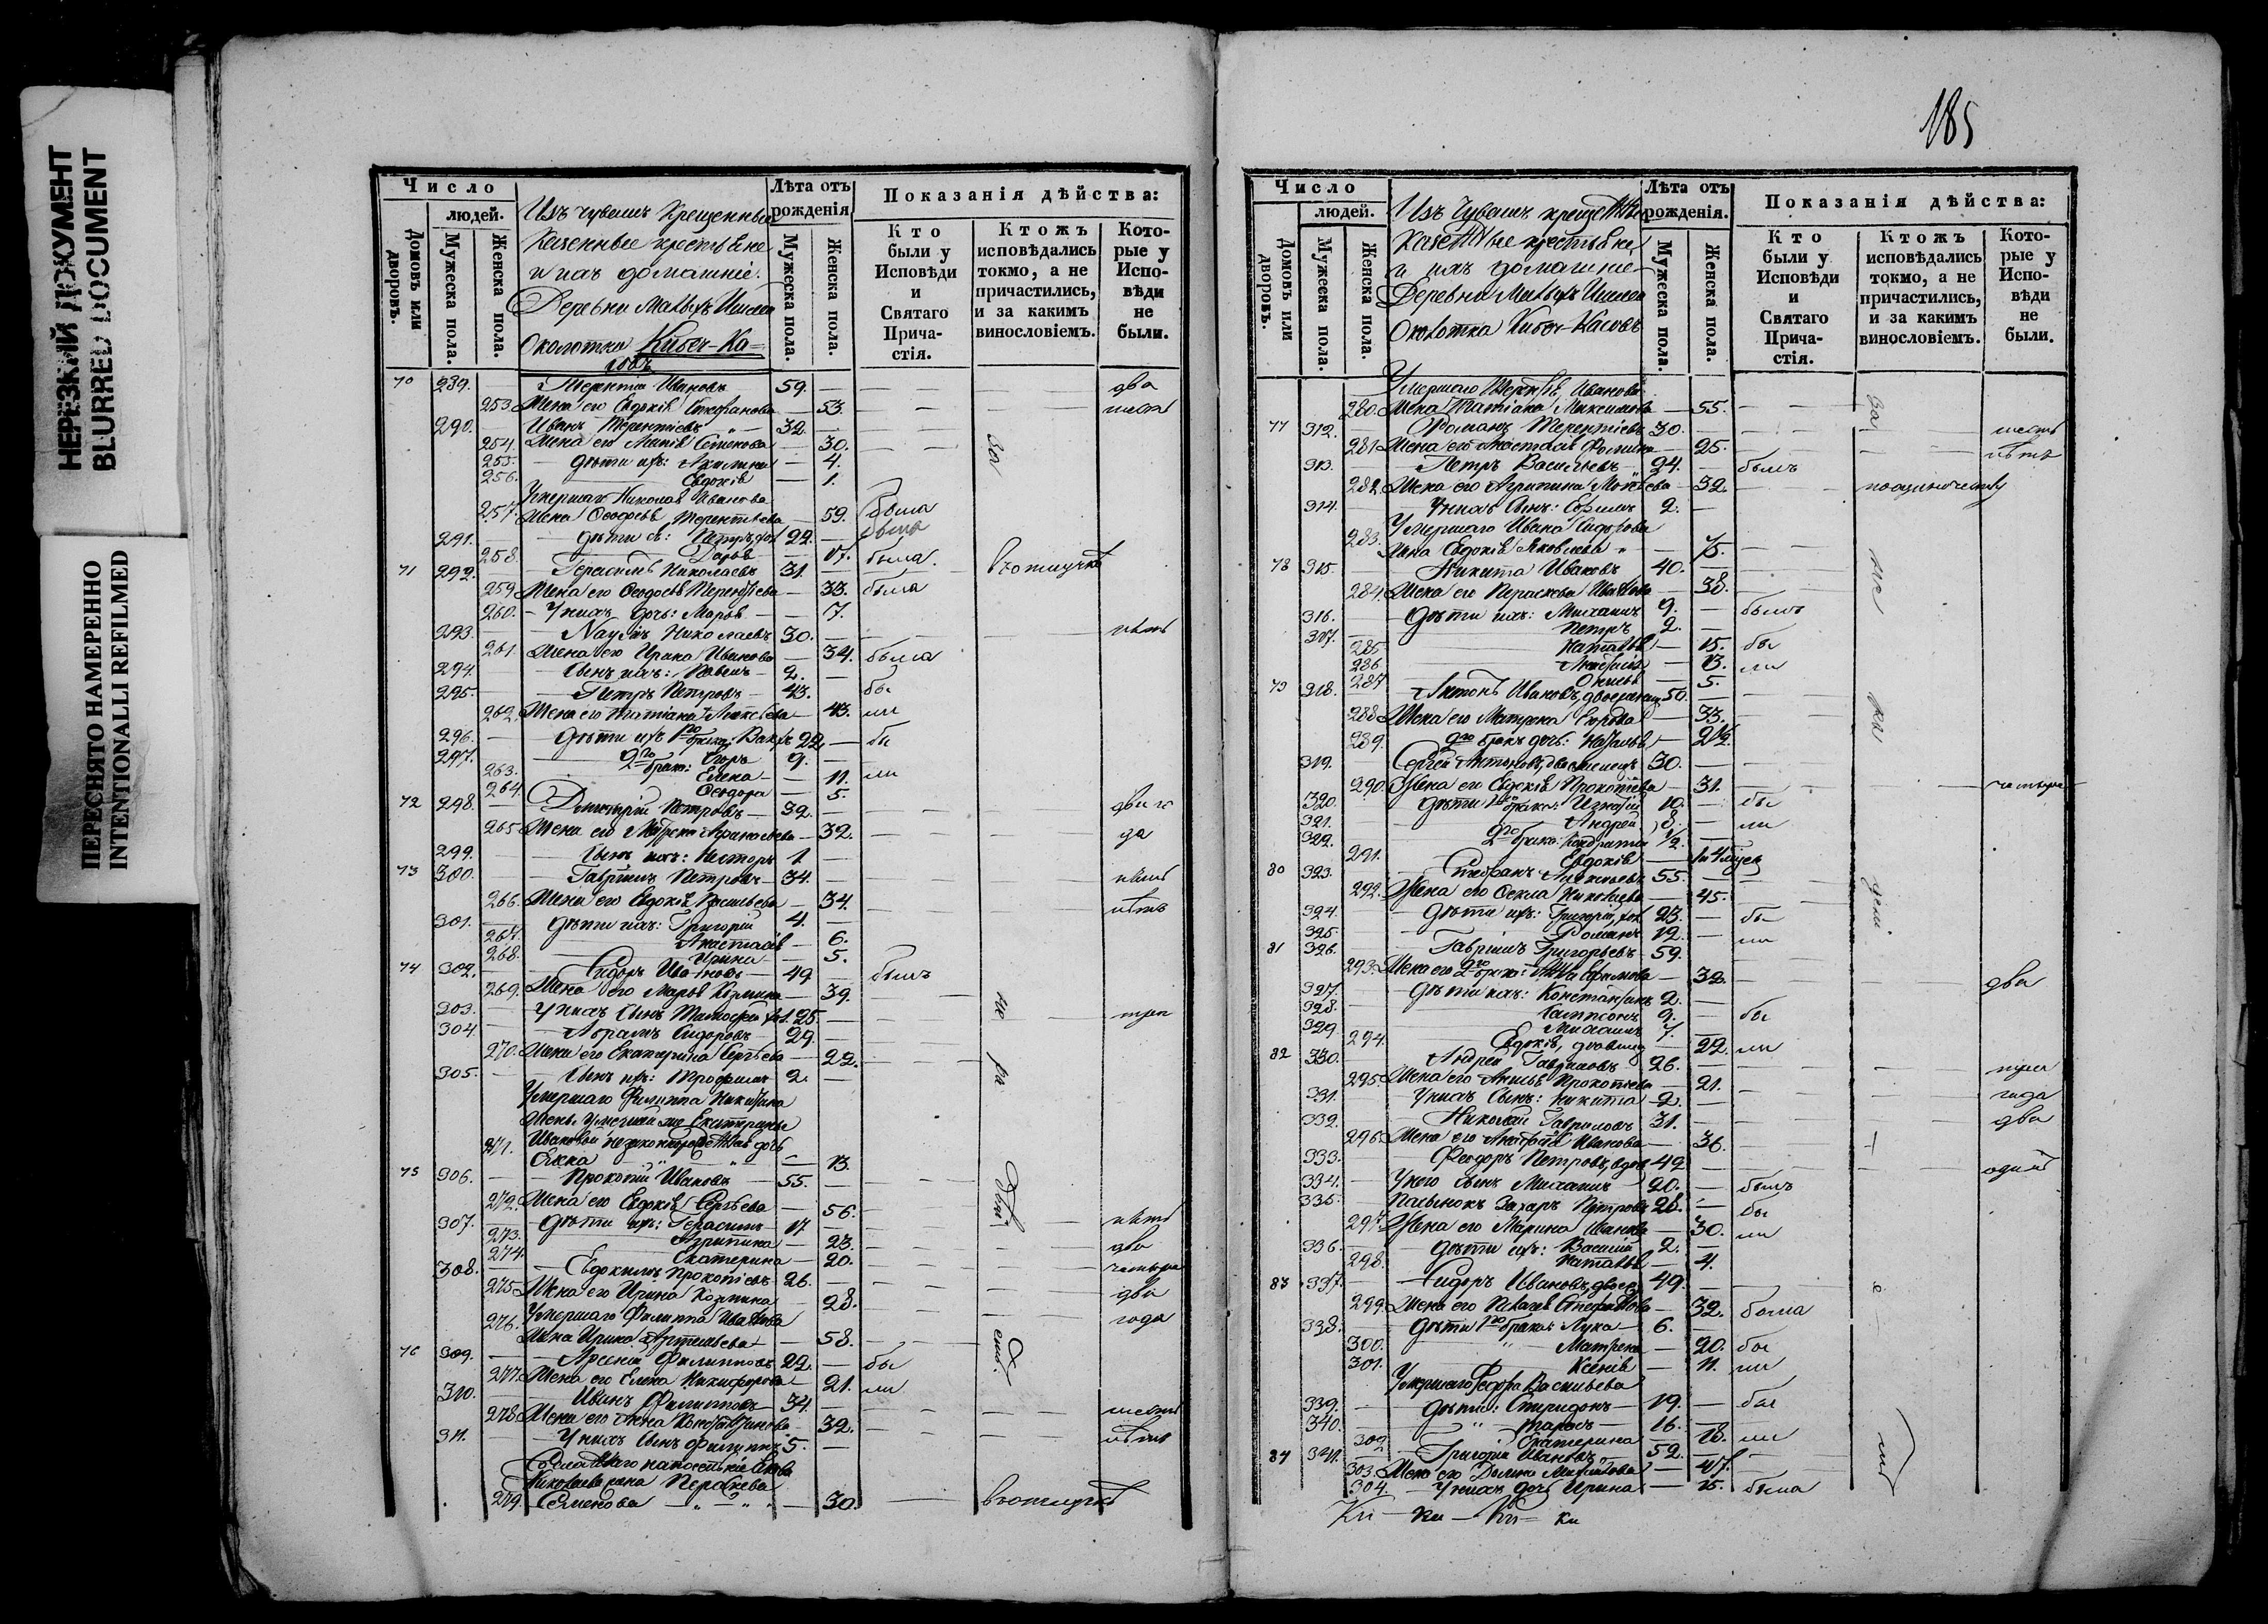 НЕРЕЗКИЙ ДОКУМЕНТ
BLURRED DOCUMENT
ПЕРЕСНЯТО НАМЕРЕННО
INTENTIONALLI REFILMED
Число
людей.
Домовъ или дворовъ.
Мужеска пола.
Женска пола.
Изъ чувашъ крещенные
казенные крестьяне
и ихъ домашніе.
Деревни Малыхъ
Околотки Кибеч-Ка=
совъ
Лѣта отъ рожденія
Мужеска пола.
Женска пола.
Показанія дѣйства:
Кто были у Исповѣди и Святаго Причастія.
Ктожъ исповѣдались токмо, а не причастились, и за какимъ винословіемъ.
Которые у Исповѣди не были.
70 239. Терентій Ивановъ 59. два
253. Жена его Евдокія Стефанова 53.
290. Иванъ Терентіевъ 32.
254. Жена его 30.
255. дѣти ихъ: Акилина 4.
256. Евдокія 1.
Умершаго Николая Иванова
257. Жена Ѳеодосья Терентьева 59. была
291. дѣти ея: Петръ, хол 22.
258. Дарья 17. была.
71 292. Герасимъ Николаевъ 31. въ отлучкѣ
259. Жена его Ѳеодосья Терентьева 33. была
260. У нихъ дочь: Марья 7.
293. Наумъ Николаевъ 30.
261. Жена его Ирина Иванова 34. была
294. Сынъ ихъ: Павелъ 2.
295. Петръ Петровъ 43. бы
262. Жена его Татіана Алексѣева 43. ли
296. дѣти ихъ 1го брака: 22. бы
297. 2го брака: Егоръ 9.
263. Елена 11. ли
264. Ѳеодора 5.
72 298. Димитрій Петровъ 32. два го
265. Жена его Матрена Афанасьева 32. да
299. Сынъ ихъ: Несторъ 1
73 300. Гавріилъ Петровъ 34.
266. Жена его Евдокія Васильева 34.
301. дѣти ихъ: Григорій 4.
267. Анастасія 6.
268. Ирина 5.
74 302. Сидоръ Ивановъ 49 былъ
269. Жена его Марья Козмина 39.
303. У нихъ сынъ Тимофей хол. 25. три
304. Абрамъ Сидоровъ 29.
270. Жена его Екатерина Сергѣева 22.
305. Сынъ ихъ: Трофимъ 2.
Умершаго Филиппа Никитина
жены умершей же Екатерины
271. Ивановой незаконнорожденная дочь
Елена 13.
75 306. Прокопій Ивановъ 55.
272. Жена его Евдокія Сергѣева 56.
307. дѣти ихъ: Герасимъ 17
273. Агрипина 23. два
274. Екатерина 20. четыре
308. Евдокимъ Прокопіевъ 26.
275. Жена его Ирина Козмина 28. два
276. Умершаго Филиппа Иванова года
жена Ирина Артемьева 58.
76 309. Арсеній Филипповъ 22. бы
277. Жена его Елена Никифорова 21. ли
310. Иванъ Филипповъ 34.
278. Жена его Анна Константинова 32.
311. У нихъ сынъ Филиппъ 5.
Сосланнаго на поселеніе Якова
Николаева жена Параскева
279. Семенова 30. въ отлучкѣ
185
Число
людей.
Домовъ или дворовъ.
Мужеска пола.
Женска пола.
Изъ чувашъ крещенные
казенные крестьяне
и ихъ домашніе
Деревни Малыхъ
Околотка Кибеч-Касовъ
Лѣта отъ рожденія.
Мужеска пола.
Женска пола.
Показанія дѣйства:
Кто были у Исповѣди и Святаго Причастія.
Ктожъ исповѣдались токмо, а не причастились, и за какимъ винословіемъ.
Которые у Исповѣди не были.
Умершаго Терентія Иванова
280. Жена Татіана Максимова 55.
77 312. Романъ Терентіевъ 30.
281. Жена его Анастасія Фомина 25.
313. Петръ Васильевъ 24. былъ
282. Жена его Агрипина 32.
314. У нихъ сынъ: Ефимъ 2.
Умершаго Ивана Сидорова
283. жена Евдокія Яковлева 75.
78 315. Никита Ивановъ 40.
284. Жена его Параскева Иванова 38.
316. дѣти ихъ: Михаилъ 9. былъ
317. Петръ 2.
285. Наталья 15. бы
286. 13. ли
287. 5.
79 318. Антонъ Ивановъ, двоеженец 50.
288. Жена его Матрена Егорова 33.
289. 2го брака дочь: Наталья
319. Сергей Антоновъ, двоеженецъ 30.
290. Жена его Евдокія Прокопіева 31. четыре
320. дѣти 1го брака: 10. бы
321. Андрей 8. ли
322. 2го брака: Кондратій 1/2.
291. Евдокія
80 323. Стефанъ Алексѣевъ 55.
292. Жена его Ѳекла Николаева 45.
324. дѣти ихъ: Григорій, хол 23. бы
325. Романъ 12. ли
81 326. Гавріилъ Григорьевъ 59.
293. Жена его 2го брака: Анна Ефимова 32. два
327. дѣти ихъ: Константинъ 2.
328. Самсонъ 9. бы
329 Михаилъ 7.
294. Евдокія, 22. ли
82 330. Андрей Гавриловъ 26. три
295. Жена его Анисья Прокопіева 21. года
331. У нихъ сынъ: Никита 2.
332. Николай Гавриловъ 31. два
296. Жена его Анастасія Иванова 36.
333. Ѳеодоръ Петровъ, вдов 42 одинъ
334. У него сынъ Михаилъ 20. былъ
335. Племянникъ Захаръ Петровъ 28. бы
297. Жена его Марина Иванова 30. ли
336. дѣти ихъ: Василій 2.
298. Наталья 4.
83 337. Сидоръ Ивановъ, двоеж 49.
299. Жена его Пелагея Стефанова 32. была
338. дѣти 1го брака: Лука 6.
300. Матрена 20. бы
301. Ксенія 11. ли
Умершаго Ѳедора Васильева
339. дѣти: Спиридонъ 19. бы
340. Тарасъ 16.
302 Екатерина 18. ли
84 341. Григорій Ивановъ 52.
303. Жена его Домна Михайлова 47.
304. У нихъ дочь Ирина 15. была